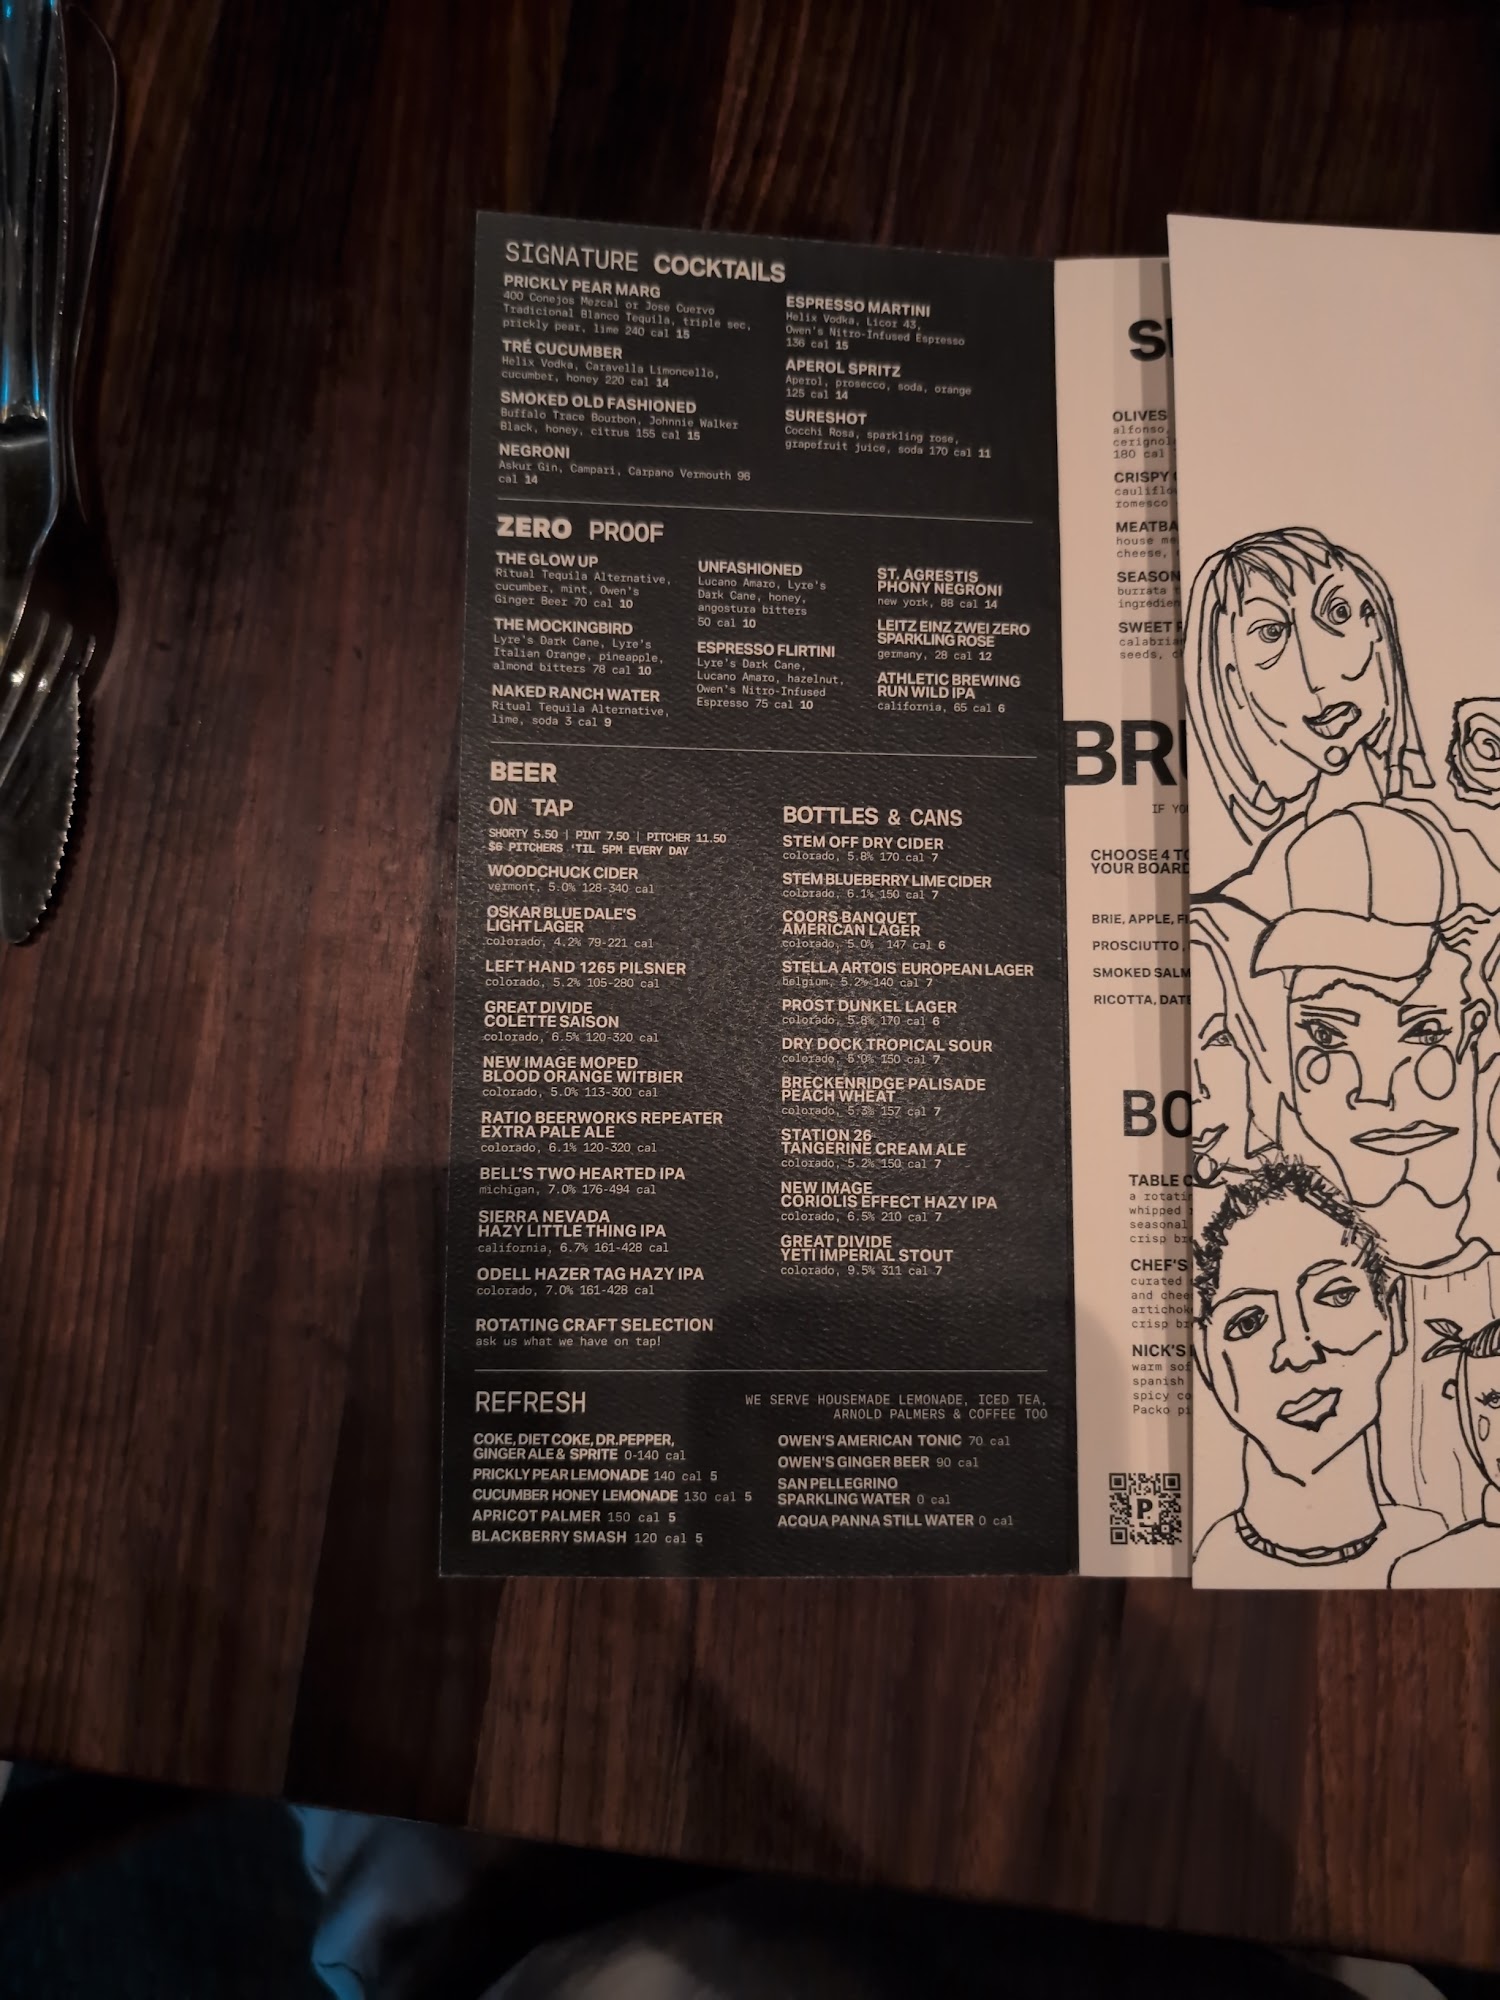 SIGNATURE COCKTAILS
PRICKLY PEAR MARG
400 Conejos Mezcal or Jose Cuervo
Tradicional Blanco Tequila, triple sec,
prickly pear, lime 240 cal 15
TRÉ CUCUMBER
Helix Vodka, Caravella Limoncello,
cucumber, honey 220 cal 14
SMOKED OLD FASHIONED
Buffalo Trace Bourbon, Johnnie Walker
Black, honey, citrus 155 cal 15
NEGRONI
Askur Gin, Campari, Carpano Vermouth 96
cal 14
ESPRESSO MARTINI
Helix Vodka, Licor 43,
Owen's Nitro-Infused Espresso
136 cal 15
APEROL SPRITZ
Aperol, prosecco, soda, orange
125 cal 14
SURESHOT
Cocchi Rosa, sparkling rose,
grapefruit juice, soda 170 cal 11
ZERO PROOF
THE GLOW UP
Ritual Tequila Alternative,
cucumber, mint, Owen's
Ginger Beer 70 cal 10
THE MOCKINGBIRD
Lyre's Dark Cane, Lyre's
Italian Orange, pineapple,
almond bitters 78 cal 10
NAKED RANCH WATER
Ritual Tequila Alternative,
lime, soda 3 cal 9
UNFASHIONED
Lucano Amaro, Lyre's
Dark Cane, honey,
angostura bitters
50 cal 10
ESPRESSO FLIRTINI
Lyre's Dark Cane,
Lucano Amaro, hazelnut,
Owen's Nitro-Infused
Espresso 75 cal 10
ST. AGRESTIS
PHONY NEGRONI
new york, 88 cal 14
LEITZ EINZ ZWEI ZERO
SPARKLING ROSE
germany, 28 cal 12
ATHLETIC BREWING
RUN WILD IPA
california, 65 cal 6
BEER
ON TAP
SHORTY 5.50 | PINT 7.50 | PITCHER 11.50
$6 PITCHERS 'TIL 5PM EVERY DAY
WOODCHUCK CIDER
vermont, 5.0% 128-340 cal
OSKAR BLUE DALE'S
LIGHT LAGER
colorado, 4.2% 79-221 cal
LEFT HAND 1265 PILSNER
colorado, 5.2% 105-280 cal
GREAT DIVIDE
COLETTE SAISON
colorado, 6.5% 120-320 cal
NEW IMAGE MOPED
BLOOD ORANGE WITBIER
colorado, 5.0% 113-300 cal
RATIO BEERWORKS REPEATER
EXTRA PALE ALE
colorado, 6.1% 120-320 cal
BELL'S TWO HEARTED IPA
michigan, 7.0% 176-494 cal
SIERRA NEVADA
HAZY LITTLE THING IPA
california, 6.7% 161-428 cal
ODELL HAZER TAG HAZY IPA
colorado, 7.0% 161-428 cal
ROTATING CRAFT SELECTION
ask us what we have on tap!
BOTTLES & CANS
STEM OFF DRY CIDER
colorado, 5.8% 170 cal 7
STEM BLUEBERRY LIME CIDER
colorado, 6.1% 150 cal 7
COORS BANQUET
AMERICAN LAGER
colorado, 5.0% 147 cal 6
STELLA ARTOIS EUROPEAN LAGER
belgium, 5.2% 140 cal 7
PROST DUNKEL LAGER
colorado, 5.6% 170 cal 6
DRY DOCK TROPICAL SOUR
colorado, 5.0% 150 cal 7
BRECKENRIDGE PALISADE
PEACH WHEAT
colorado, 5.3% 157 cal 7
STATION 26
TANGERINE CREAM ALE
colorado, 5.2% 150 cal 7
NEW IMAGE
CORIOLIS EFFECT HAZY IPA
colorado, 6.5% 210 cal 7
GREAT DIVIDE
YETI IMPERIAL STOUT
colorado, 9.5% 311 cal 7
REFRESH
WE SERVE HOUSEMADE LEMONADE, ICED TEA,
ARNOLD PALMERS & COFFEE TOO
COKE, DIET COKE, DR.PEPPER,
GINGER ALE & SPRITE 0-140 cal
PRICKLY PEAR LEMONADE 140 cal 5
CUCUMBER HONEY LEMONADE 130 cal 5
APRICOT PALMER 150 cal 5
BLACKBERRY SMASH 120 cal 5
OWEN'S AMERICAN TONIC 70 cal
OWEN'S GINGER BEER 90 cal
SAN PELLEGRINO
SPARKLING WATER 0 cal
ACQUA PANNA STILL WATER 0 cal
OLIVES
alfonso,
180 cal
CRISPY
romesco
house
cheese,
burrata
SWEET
seeds,
IF
CHOOSE 4
YOUR BOARD
BRIE, APPLE,
PROSCIUTTO,
SMOKED
RICOTTA,
TABLE
a
whipped
seasonal
crisp
CHEF'S
curated
and
crisp
NICK'S
warm
spanish
spicy
Packo
P